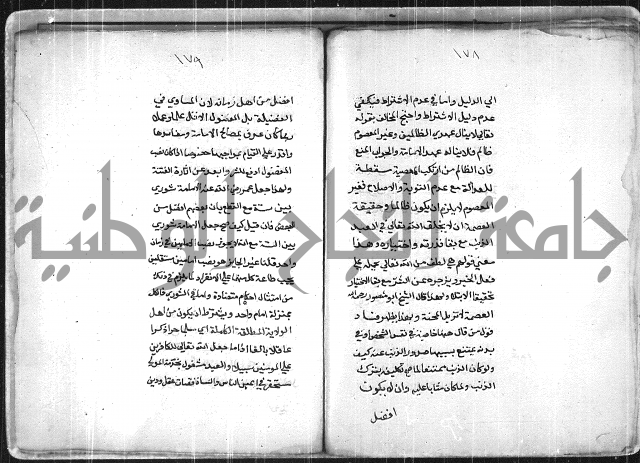 ١٧٨
الى الدليل واما في عدم الاشتراط فيكفي
عدم دليل الاشتراط واحتج المخالف بقوله
تعالى لا ينال عهدي الظالمين وغير المعصوم
ظالم فلا يناله عهد الامامة والجواب المنع
فان الظالم من ارتكب المعصية مسقطة
للعدالة مع عدم التوبة والاصلاح فغير
المعصوم لا يلزم ان يكون ظالما وحقيقة
العصمة ان لا يخلق الله تعالى في العبد
الذنب مع بقاء قدرته واختياره وهذا
معنى قولهم هي لطف من الله تعالى يحمله على
فعل الخير ويزجره عن الشر مع بقاء الاختيار
تحقيقا للابتلاء ولهذا قال الشيخ ابو منصور رحمه الله
العصمة لا تزيل المحنة وبهذا يظهر فساد
قول من قال هي خاصة في نفس الشخص او في
بدنه يمتنع بسببها صدور الذنب عنه كيف
ولو كان الذنب ممتنعا لما صح تكليفه بترك
الذنب ولما كان مثابا عليه ولا ان يكون
افضل
١٧٩
افضل من اهل زمانه لان المساوي في
الفضيلة بل المفضول الاقل علما وعملا
ربما كان اعرف بمصالح الامامة ومفاسدها
واقدر على القيام بمواجبها خصوصا اذا كان نصب
المفضول ادفع للشر وابعد عن اثارة الفتنة
ولهذا جعل عمر رضي الله عنه الامامة شورى
بين ستة مع القطع بان بعضهم افضل من
بعض فان قيل كيف صح جعل الامامة شورى
بين الستة مع انه لا يجوز نصب امامين في زمان
واحد قلنا غير الجائز هو نصب امامين مستقلين
يجب طاعة كل منهما على الانفراد لما يلزم في ذلك
من امتثال احكام متضادة واما في الشورى فالكل
بمنزلة امام واحد ويشترط ان يكون من اهل
الولاية المطلقة الكاملة اي مسلما حرا ذكرا
عاقلا بالغا اذ ما جعل الله تعالى للكافرين
على المؤمنين سبيلا والعبد مشغول بخدمة المولى
مستحقر في اعين الناس والنساء ناقصات عقل ودين
جامعة النجاح الوطنية